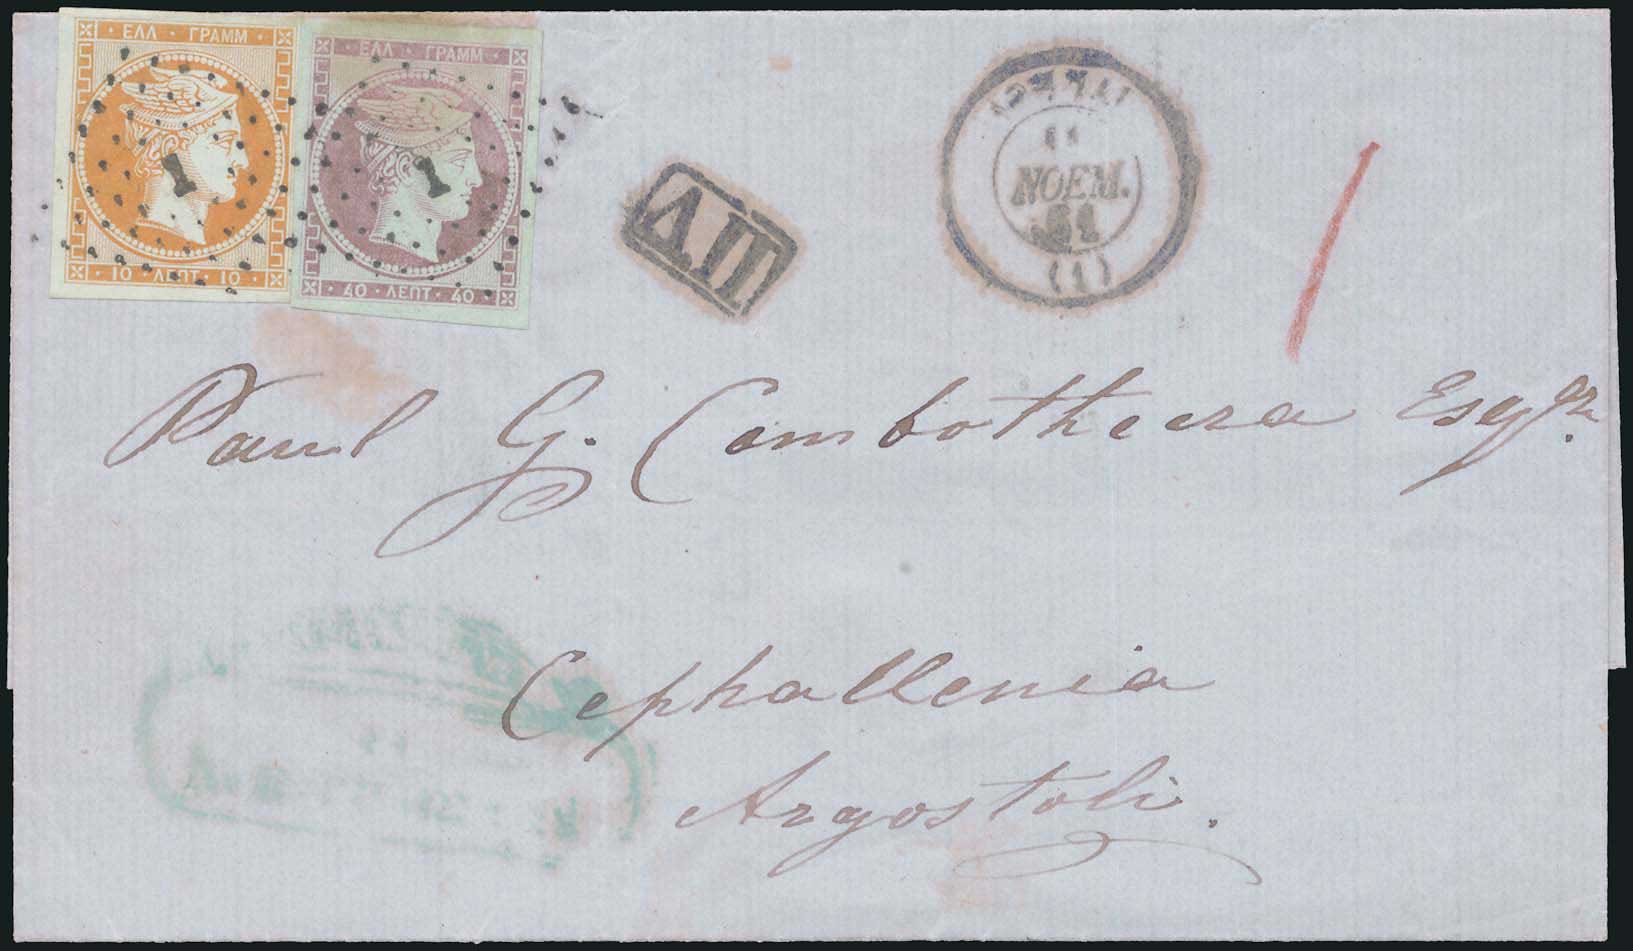 ΕΛΛ · ΓΡΑΜΜ
1
10 · ΛΕΠΤ · 10
ΕΛΛ · ΓΡΑΜΜ
1
40 · ΛΕΠΤ · 40
ΔΠ
11
ΝΟΕΜ.
61
(1)
Paul G. Combothecra Esqre.
Cephallenia
Argostoli.